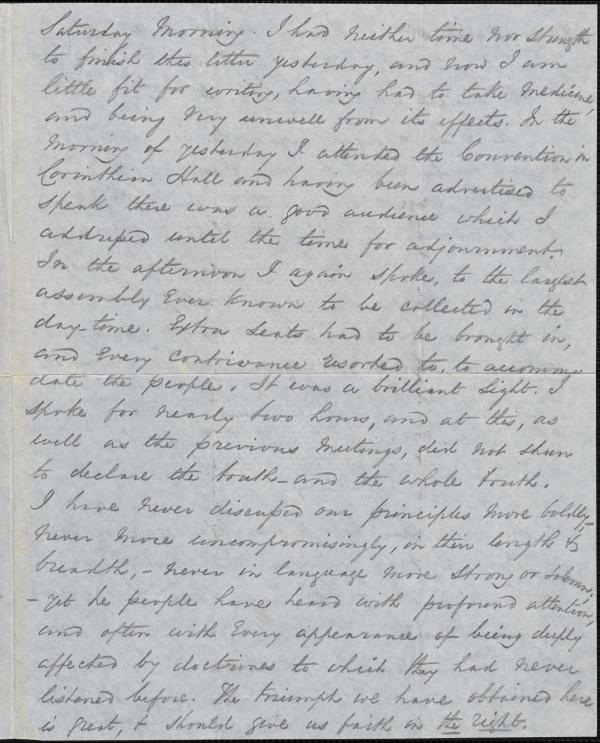 Saturday Morning. I had neither time nor strength
to finish this letter yesterday, and now I am
little fit for writing, having had to take medicine,
and being very unwell from its effects. In the
Morning of yesterday I attended the Convention in
Corinthian Hall and having been advertised to
speak there was a good audience which I
addressed until the time for adjournment.
In the afternoon I again spoke, to the largest
assembly Ever known to be collected in the
day-time. Extra Seats had to be brought in,
and Every contrivance resorted to, to accommo
date the people. It was a brilliant Sight. I
spoke for nearly two hours, and at this, as
well as the previous Meetings, did not shun
to declare the truth - and the whole truth.
I have never discussed our principles More boldly, -
never More uncompromisingly, in their length &
breadth, - never in language More strong or solemn;
- yet the people have heard with profound attention,
and often with Every appearance of being deeply
affected by doctrines to which they had never
listened before. The triumph we have obtained here
is great, & should give us faith in the right.